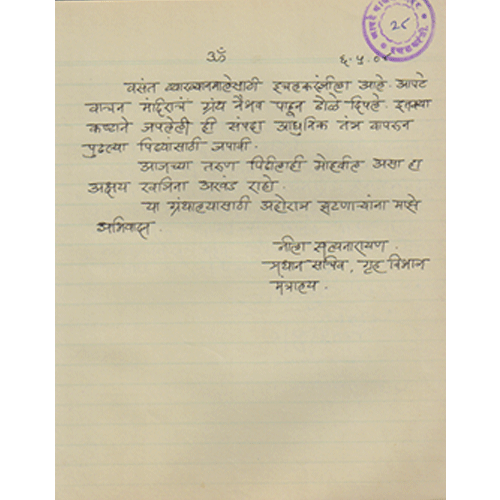 २८
ॐ
६.५.०८
वसंत व्याख्यानमालेसाठी इचलकरंजीला आले. आपटे
वाचन मंदिराचं ग्रंथ वैभव पाहून डोळे दिपले. इतक्या
कष्टाने जपलेली ही संपदा आधुनिक तंत्र वापरुन
पुढल्या पिढ्यांसाठी जपावी.
आजच्या तरुण पिढीलाही मोहवील असा हा
अक्षय खजिना अखंड राहो.
या ग्रंथालयासाठी अहोरात्र झटणाऱ्यांना मनःपूर्वक
अभिवादन.
नीला सत्यनारायण.
प्रधान सचिव, गृह विभाग
मंत्रालय.